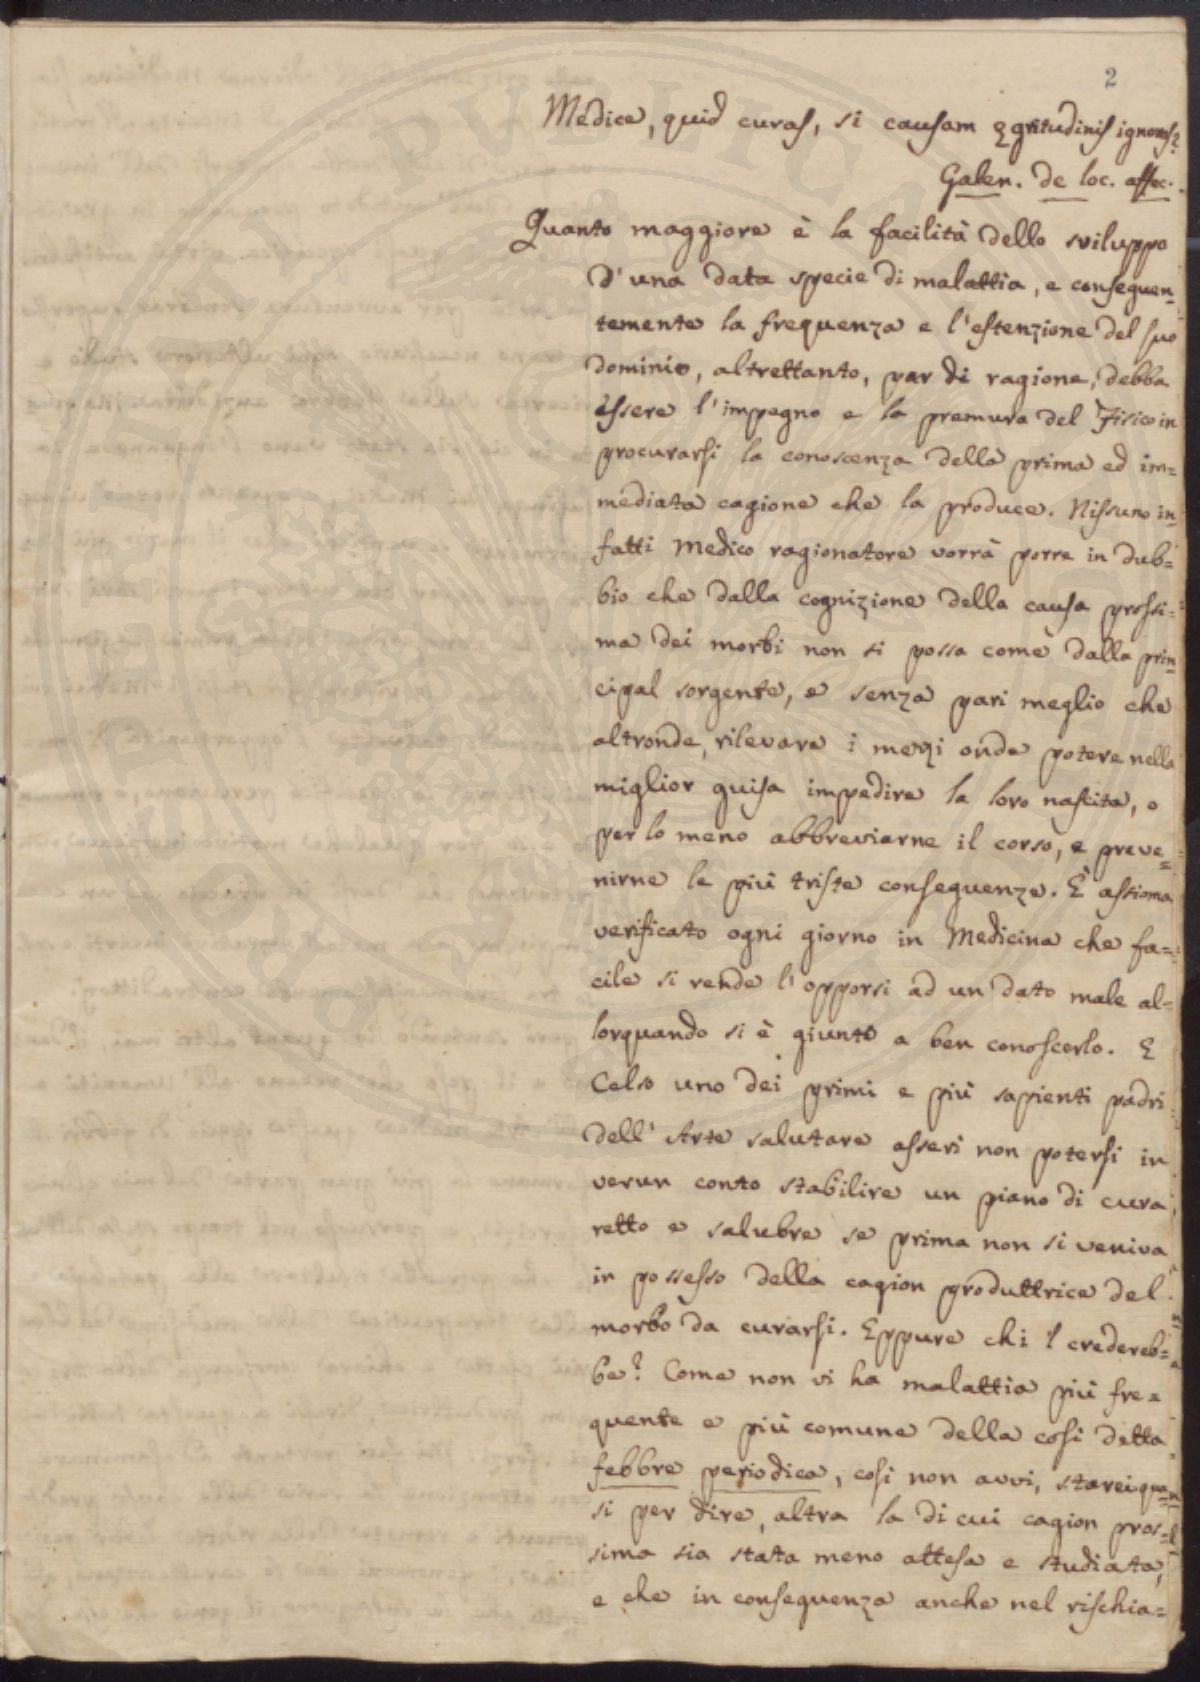 2
Medice, quid curas, si causam ęgritudinis ignoras?
Galen. de loc. affec.
Quanto maggiore è la facilità dello sviluppo
d'una data specie di malattia, e conseguen=
temente la frequenza e l'estenzione del suo
dominio, altrettanto, par di ragione, debba
essere l'impegno e la premura del Fisico in
procurarsi la conoscenza della prima ed im=
mediata cagione che la produce. Nissuno in=
fatti Medico ragionatore vorrà porre in dub=
bio che dalla cognizione della causa prossi=
ma dei morbi non si possa come dalla prin=
cipal sorgente, e senza pari meglio che
altronde, rilevare i mezzi onde potere nella
miglior guisa impedire la loro nascita, o
per lo meno abbreviarne il corso, e preve=
nirne le più triste conseguenze. È assioma
verificato ogni giorno in Medicina che fa=
cile si rende l'opporsi ad un dato male al=
lorquando si è giunto a ben conoscerlo. E
Celso uno dei primi e più sapienti padri
dell'Arte salutare asserì non potersi in
verun conto stabilire un piano di cura
retto e salubre se prima non si veniva
in possesso della cagion produttrice del
morbo da curarsi. Eppure chi 'l credereb=
be? Come non vi ha malattia più fre=
quente e più comune della così detta
febbre periodica, così non avvi, starei qua=
si per dire, altra la di cui cagion pros=
sima sia stata meno attesa e studiata,
e che in conseguenza anche nel rischia=